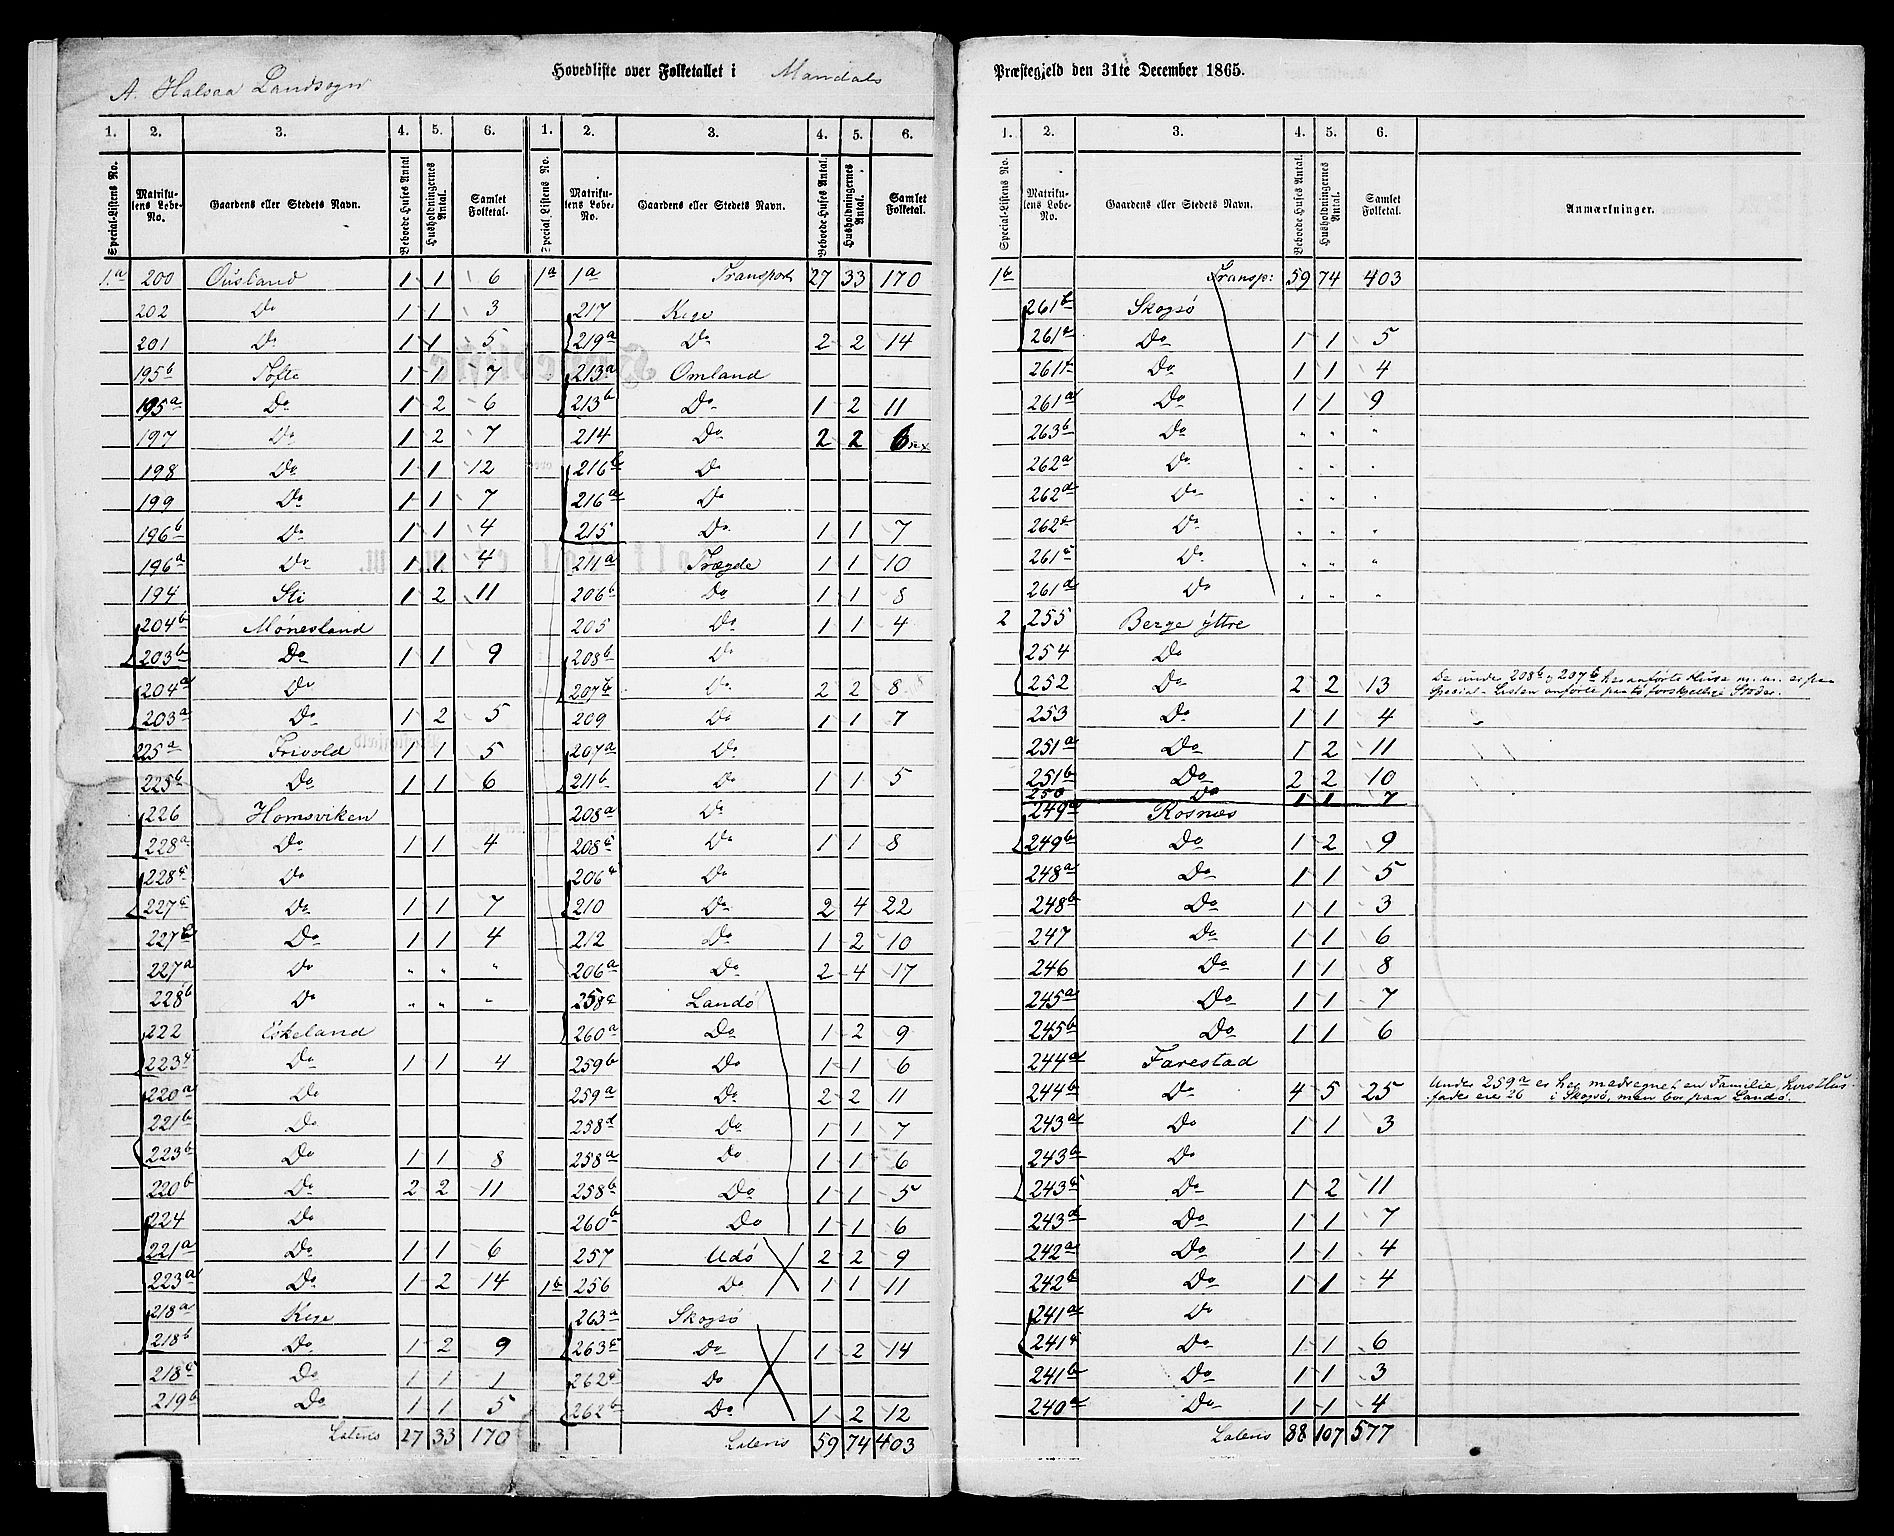 Hovedliste over Folketallet i Mandals
A. Halsaa Landsogn
1. 2. 3. 4. 5. 6. 1. 2. 3. 4. 5. 6.
Special-Listens No. Matrikulens Løbe-No. Gaardens eller Stedets Navn. Beboede Huses Antal Husholdningernes Antal. Samlet Folketal. Special-Listens No. Matrikulens Løbe-No. Gaardens eller Stedets Navn. Beboede Huses Antal. Husholdningernes Antal. Samlet Folketal.
1.a 200 Ousland 1 1 6
202 Do 1 1 3
201 Do 1 1 5
195b Tofte 1 1 7
195a Do 1 2 6
197 Do 1 2 7
198 Do 1 1 12
199 Do 1 1 7
196b Do 1 1 4
196a Do 1 1 4
194 Sti 1 2 11
204b Mønesland
203b Do 1 1 9
204a Do
203a Do 1 2 5
225a Frivold 1 1 5
225b Do 1 1 6
226 Homsviken
228a Do 1 1 4
228c Do
227c Do 1 1 7
227b Do 1 1 4
227a Do " " "
228b Do " " "
222 Eskeland
223c Do 1 1 4
220a Do
221b Do
223b Do 1 1 8
220b Do 2 2 11
224 Do
221a Do 1 1 6
223a Do 1 2 14
218a Kige
218b Do 1 2 9
218c Do 1 1 1
219b Do 1 1 5
Lateris 27 33 170
1a 1a Transport 27 33 170
217 Kige
219a Do 2 2 14
213a Omland
213b Do 1 2 11
214 Do 2 2 6
216b Do
216a Do
215 Do 1 1 7
211a Trægde 1 1 10
206b Do 1 1 8
205 Do 1 1 4
208b Do
207b Do 2 2 8
209 Do 1 1 7
207a Do
211b Do 1 1 5
208a Do
208c Do 1 1 8
206c Do
210 Do 2 4 22
212 Do 1 2 10
206a Do 2 4 17
258c Landø
260a Do 1 2 9
259b Do 1 1 6
259a Do 2 2 11
258d Do 1 1 7
258a Do 1 1 6
258b Do 1 1 5
260b Do 1 1 6
257 Udø 2 2 9
1b 256 Do 1 1 11
263a Skogsø
263c Do 1 2 14
262c Do
262b Do 1 2 12
Lateris 59 74 403
Præstegjeld den 31te December 1865.
1. 2. 3. 4. 5. 6.
Special-Listens No. Matrikulens Løbe-No. Gaardens eller Stedets Navn. Beboede Huses Antal. Husholdningernes Antal. Samlet Folketal. Anmærkninger.
1b Transp: 59 74 403
261b Skogsø
261c Do 1 1 5
261f Do 1 1 4
261a Do 1 1 9
263b Do " " "
262a Do " " "
262d Do " " "
262e Do " " "
261e Do " " "
261d Do " " "
2 255 Berge ÿttre
254 Do
252 Do 2 2 13 De under 208b og 207b her anførte Huse m. m. er paa
Special-Listen anførte paa to forskjellige Steder.
253 Do 1 1 4
251a Do 1 2 11
251b Do 2 2 10
250 Do 1 1 7
249a Rosnæs
249b Do 1 2 9
248a Do 1 1 5
248b Do 1 1 3
247 Do 1 1 6
246 Do 1 1 8
245a Do 1 1 7
245b Do 1 1 6
244a Farestad
244b Do 4 5 25 Under 259a er her medregnet en Familie, hvis Hus-
fader eie 26 i Skogsø, men bor paa Landø.
243a Do 1 1 3
243b Do
243c Do 1 2 11
243d Do 1 1 7
242a Do 1 1 4
242b Do 1 1 4
241a Do
241c Do 1 1 6
241b Do 1 1 3
240a Do 1 1 4
Lateris 88 107 577